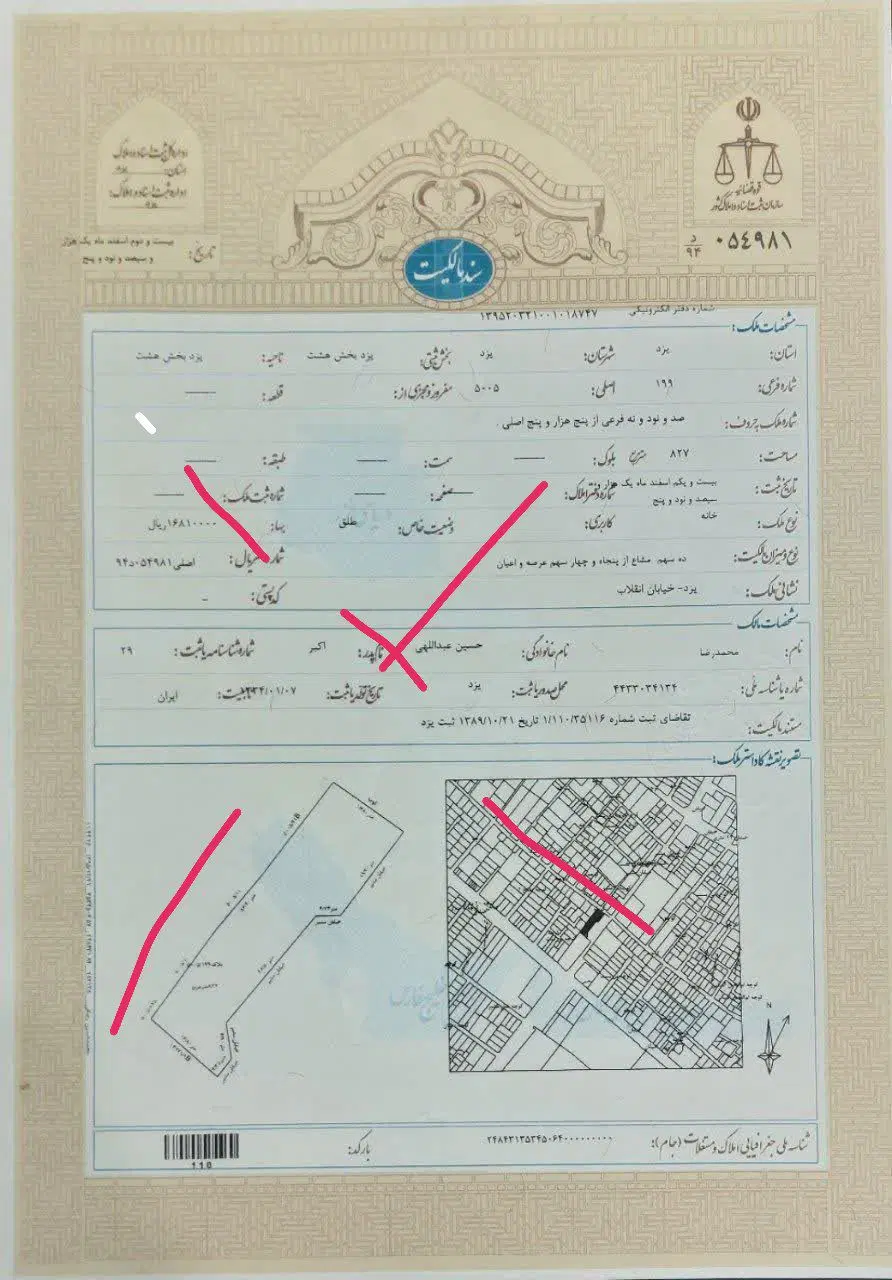 قوه قضائیه
سازمان ثبت اسناد و املاک کشور
اداره کل ثبت اسناد و املاک
استان: یزد
اداره ثبت اسناد و املاک:
یزد
۰۵۴۹۸۱ د ۹۴
تاریخ: بیست و دوم اسفند ماه یک هزار و سیصد و نود و پنج
سند مالکیت
شماره دفتر الکترونیکی ۱۳۹۵۲۰۳۲۱۰۰۱۰۱۸۷۴۷
مشخصات ملک:
استان: یزد شهرستان: یزد بخش ثبتی: یزد بخش هشت ناحیه: یزد بخش هشت
شماره فرعی: ۱۹۹ اصلی: ۵۰۰۵ مفروز و مجزی از: قطعه: ——
شماره ملک بحروف: صد و نود و نه فرعی از پنج هزار و پنج اصلی .
مساحت: ۸۲۷ متر مربع بلوک: —— سمت: —— طبقه: ——
تاریخ ثبت: بیست و یکم اسفند ماه یک هزار و سیصد و نود و پنج شماره دفتر املاک: —— صفحه: —— شماره ثبت ملک: ——
نوع ملک: خانه کاربری: وضعیت خاص: طلق بهاء: ۱۶۸۱۰۰۰۰ ریال
نوع و میزان مالکیت: ده سهم مشاع از پنجاه و چهار سهم عرصه و اعیان شماره سریال: اصلی ۰۵۴۹۸۱د۹۴
نشانی ملک: یزد- خیابان انقلاب کد پستی: -
مشخصات مالک
نام: محمدرضا نام خانوادگی: حسین عبداللهی نام پدر: اکبر شماره شناسنامه یا ثبت: ۲۹
شماره یا شناسه ملی: ۴۴۳۳۰۳۴۱۳۴ محل صدور یا ثبت: یزد تاریخ تولد یا ثبت: ۱۳۳۴/۰۱/۰۷ تابعیت: ایران
مستند مالکیت: تقاضای ثبت شماره ۱/۱۱۰/۳۵۱۱۶ تاریخ ۱۳۸۹/۱۰/۲۱ ثبت یزد
تصویر نقشه کاداستر ملک:
خلیج فارس
N
شناسه ملی جغرافیایی املاک و مستغلات (جام): ۲۴۸۴۳۱۳۵۳۴۵۰۶۴۰۰۰۰۰۰۰۰۰۰
بارکد:
110